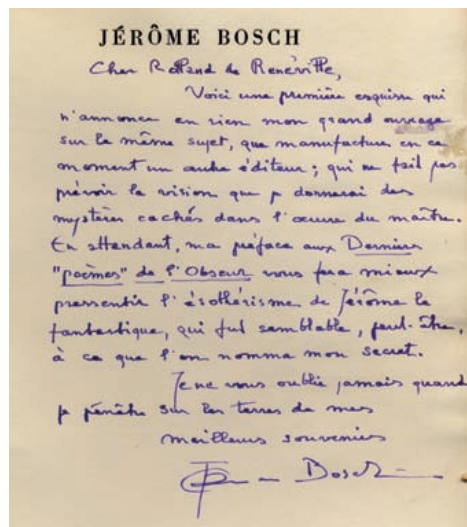 JÉRÔME BOSCH
Cher Rolland de Renéville,
Voici une première esquisse qui
n'annonce en rien mon grand ouvrage
sur le même sujet, que manufacture en ce
moment un autre éditeur ; qui ne fait pas
prévoir la vision que je donnerai des
mystères cachés dans l'œuvre du maître.
En attendant, ma préface aux Derniers
"poèmes" de l'Obscur vous fera mieux
pressentir l'ésothérisme de Jérôme le
fantastique, qui fut semblable, peut-être,
à ce que l'on nomma mon secret.
Je ne vous oublie jamais quand
je pénètre sur les terres de mes
meilleurs souvenirs
Bosch